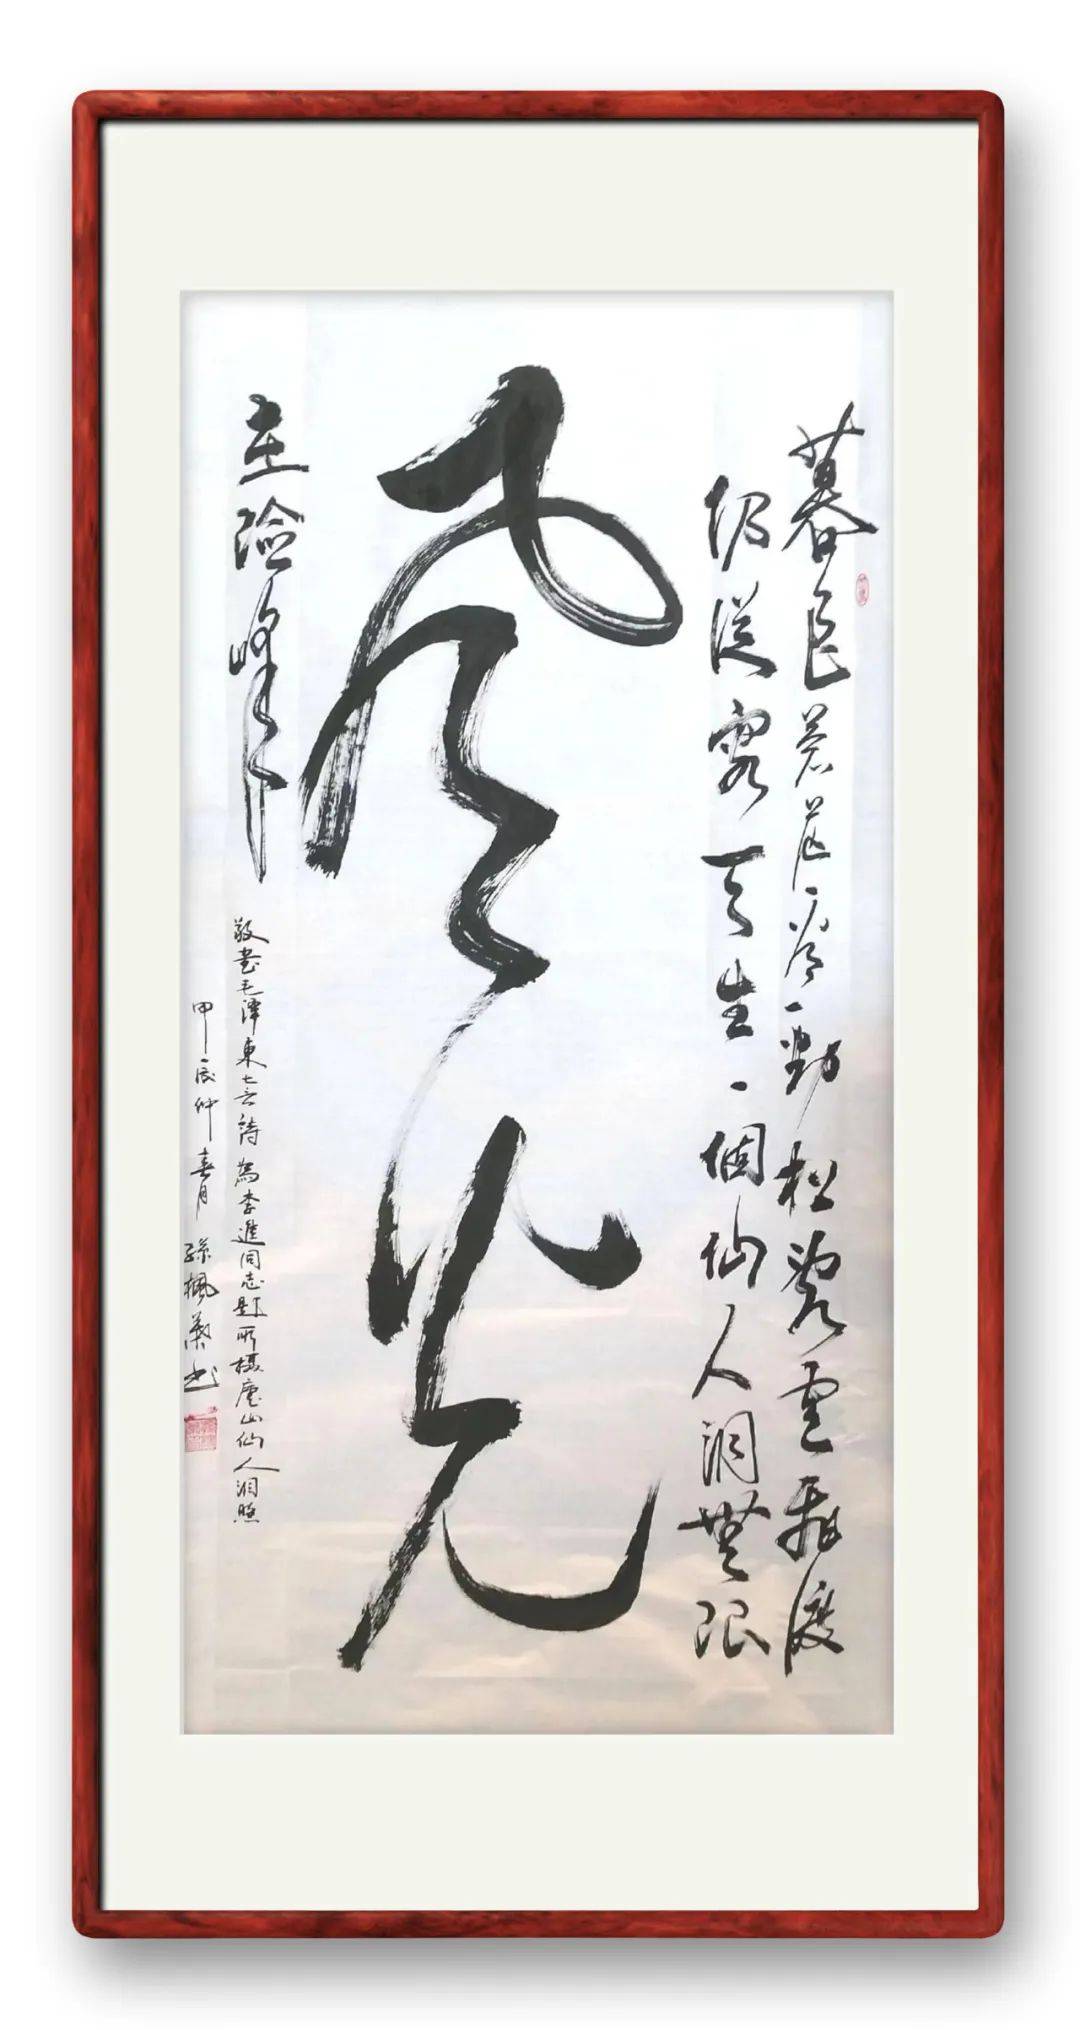 暮色蒼茫看勁松亂雲飛渡
仍從容天生一個仙人洞無限
風光
在險峰
敬書毛澤東七言詩為李進同志題所攝廬山仙人洞照
甲辰仲春月 孫楓葉书